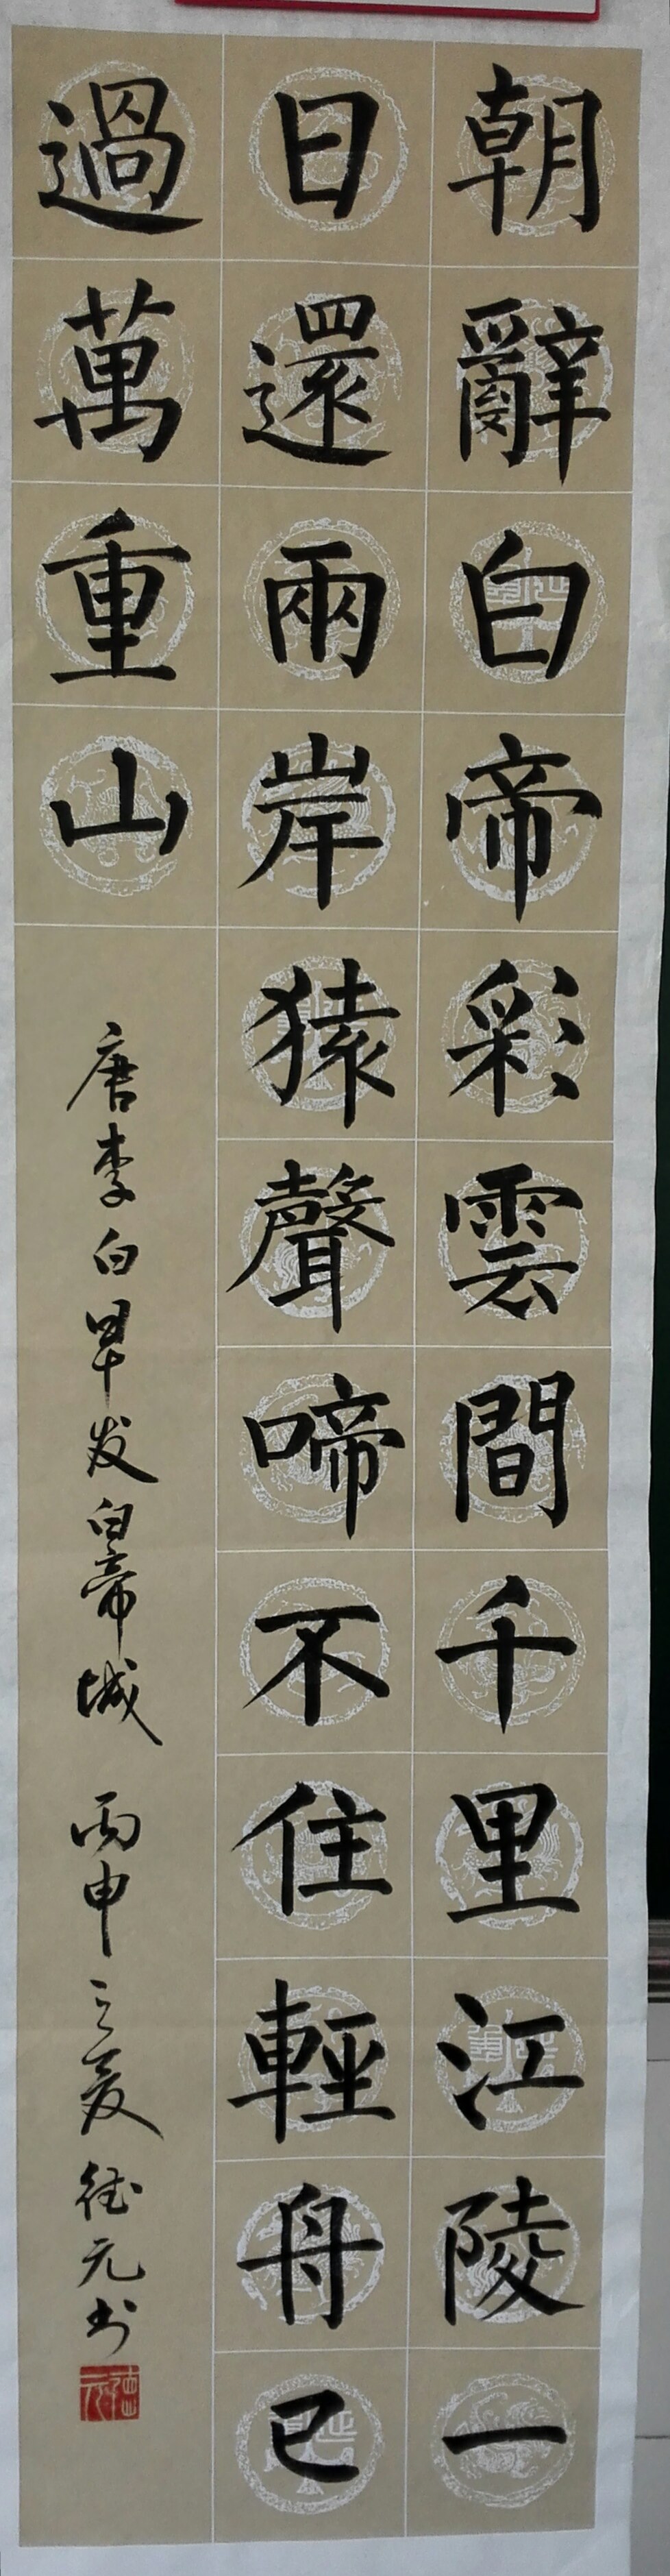 朝辭白帝彩雲間千里江陵一
日還兩岸猿聲啼不住輕舟已
過萬重山
唐李白早发白帝城 丙申之夏 德元书
德元